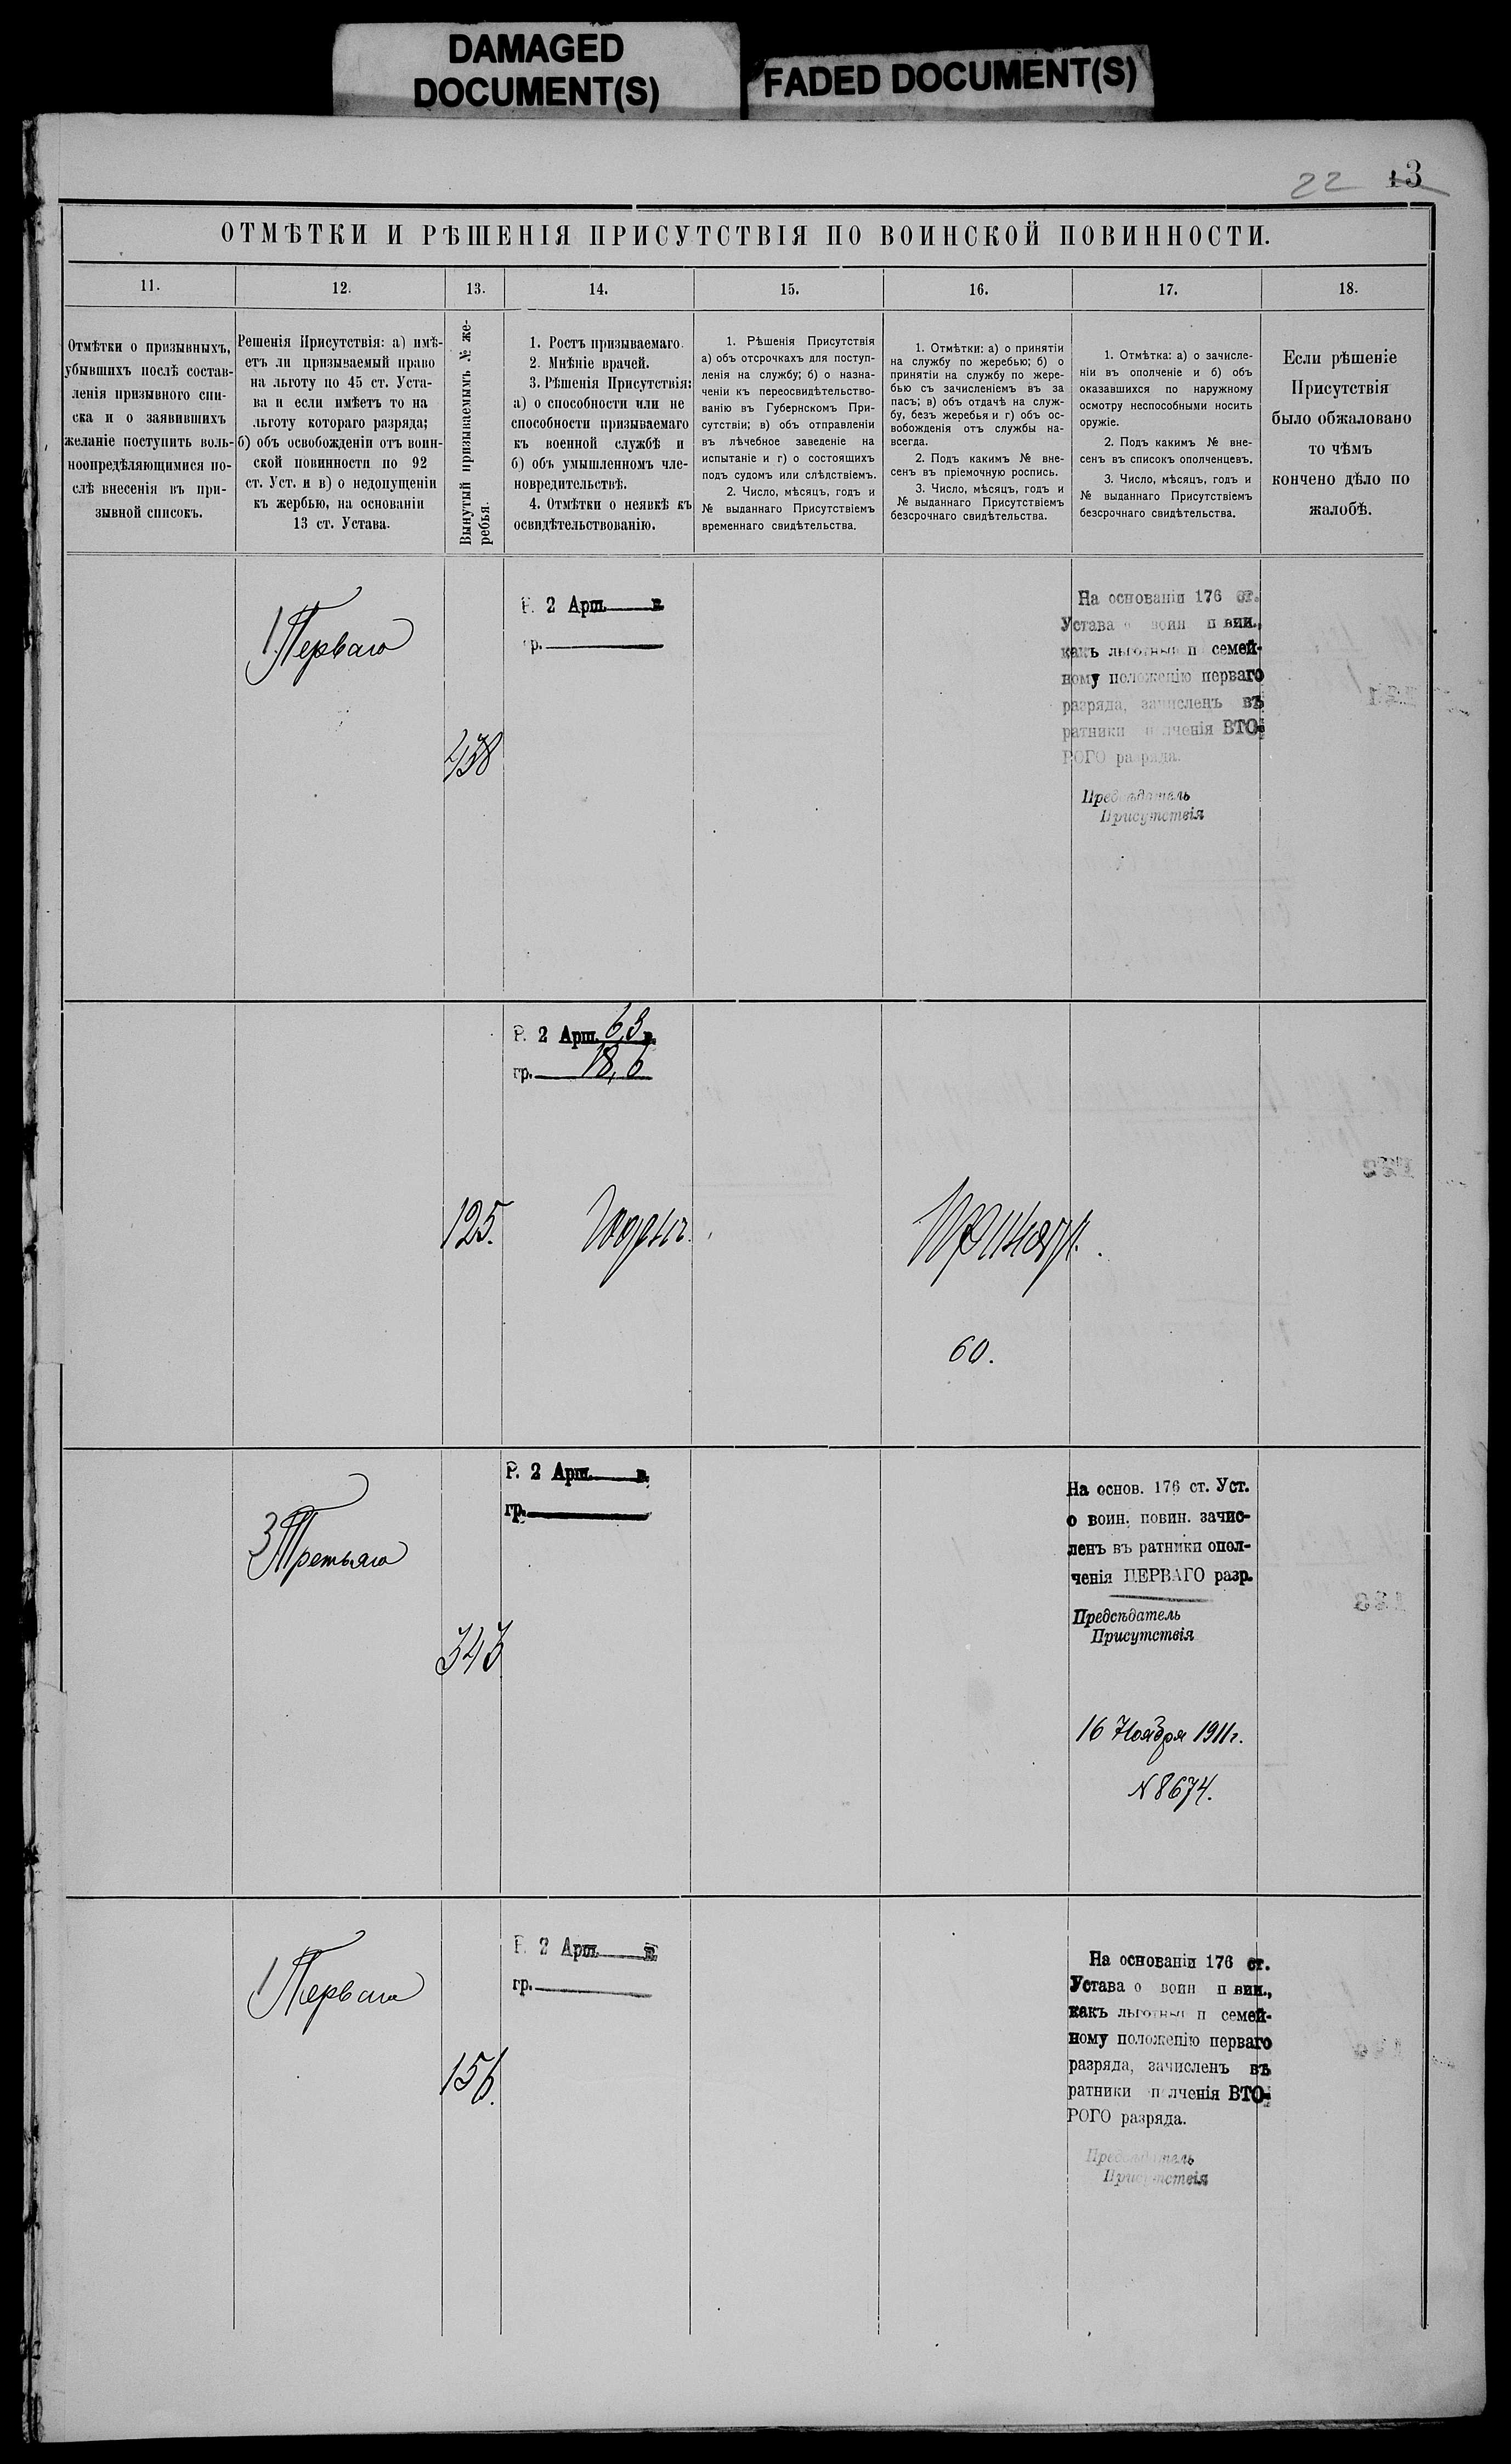 DAMAGED
DOCUMENT(S)
FADED DOCUMENT(S)
22 13
ОТМѢТКИ И РѢШЕНІЯ ПРИСУТСТВІЯ ПО ВОИНСКОЙ ПОВИННОСТИ.
11.
12.
13.
14.
15.
16.
17.
18.
Отмѣтки о призывныхъ,
убывшихъ послѣ состав-
ленія призывного спи-
ска и о заявившихъ
желаніе поступить воль-
ноопредѣляющимися по-
слѣ внесенія въ при-
зывной списокъ.
Решенія Присутствія: а) имѣ-
етъ ли призываемый право
на льготу по 45 ст. Уста-
ва и если имѣетъ то на
льготу котораго разряда;
б) объ освобожденіи отъ воин-
ской повинности по 92
ст. Уст. и в) о недопущеніи
къ жербью, на основаніи
13 ст. Устава.
Вынутый призываемымъ № же-
ребья.
1. Ростъ призываемаго.
2. Мнѣніе врачей.
3. Рѣшенія Присутствія:
а) о способности или не
способности призываемаго
къ военной службѣ и
б) объ умышленномъ чле-
новредительствѣ.
4. Отмѣтки о неявкѣ къ
освидѣтельствованію.
1. Рѣшенія Присутствія
а) объ отсрочкахъ для поступ-
ленія на службу; б) о назна-
ченіи къ переосвидѣтельство-
ванію въ Губернскомъ При-
сутствіи; в) объ отправленіи
въ лѣчебное заведеніе на
испытаніе и г) о состоящихъ
подъ судомъ или слѣдствіемъ.
2. Число, мѣсяцъ, годъ и
№ выданнаго Присутствіемъ
временнаго свидѣтельства.
1. Отмѣтки: а) о принятіи
на службу по жеребью; б) о
принятіи на службу по жере-
бью съ зачисленіемъ въ за
пасъ; в) объ отдачѣ на служ-
бу, безъ жеребья и г) объ ос-
вобожденія отъ службы на-
всегда.
2. Подъ какимъ № вне-
сенъ въ пріемочную роспись.
3. Число, мѣсяцъ, годъ и
№ выданнаго Присутствіемъ
безсрочнаго свидѣтельства.
1. Отмѣтка: а) о зачисле-
ніи въ ополченіе и б) объ
оказавшихся по наружному
осмотру неспособными носить
оружіе.
2. Подъ какимъ № вне-
сенъ въ списокъ ополченцевъ.
3. Число, мѣсяцъ, годъ и
№ выданнаго Присутствіемъ
безсрочнаго свидѣтельства.
Если рѣшеніе
Присутствія
было обжаловано
то чѣмъ
кончено дѣло по
жалобѣ.
1 Перваго
Р. 2 Арш. в.
гр.
На основаніи 176 ст.
Устава о воин п вин.,
какъ льготный п семей-
ному положенію перваго
разряда, зачисленъ въ
ратники п лченія ВТО-
РОГО разряда.
Предсѣдатель
Присутствія
Р. 2 Арш. 6,3 в.
гр. 18,6
125.
Годенъ.
Принятъ.
60.
3 Третьяго
343
Р. 2 Арш. в.
гр.
На основ. 176 ст. Уст.
о воин. повин. зачис-
ленъ въ ратники опол-
ченія ПЕРВАГО разр.
Предсѣдатель
Присутствія
16 Ноября 1911 г.
N 8674.
1 Перваго
156.
Р. 2 Арш. в.
гр.
На основаніи 176 ст.
Устава о воин п вин.,
какъ льготный п семей-
ному положенію перваго
разряда, зачисленъ въ
ратники п лченія ВТО-
РОГО разряда.
Предсѣдатель
Присутствія